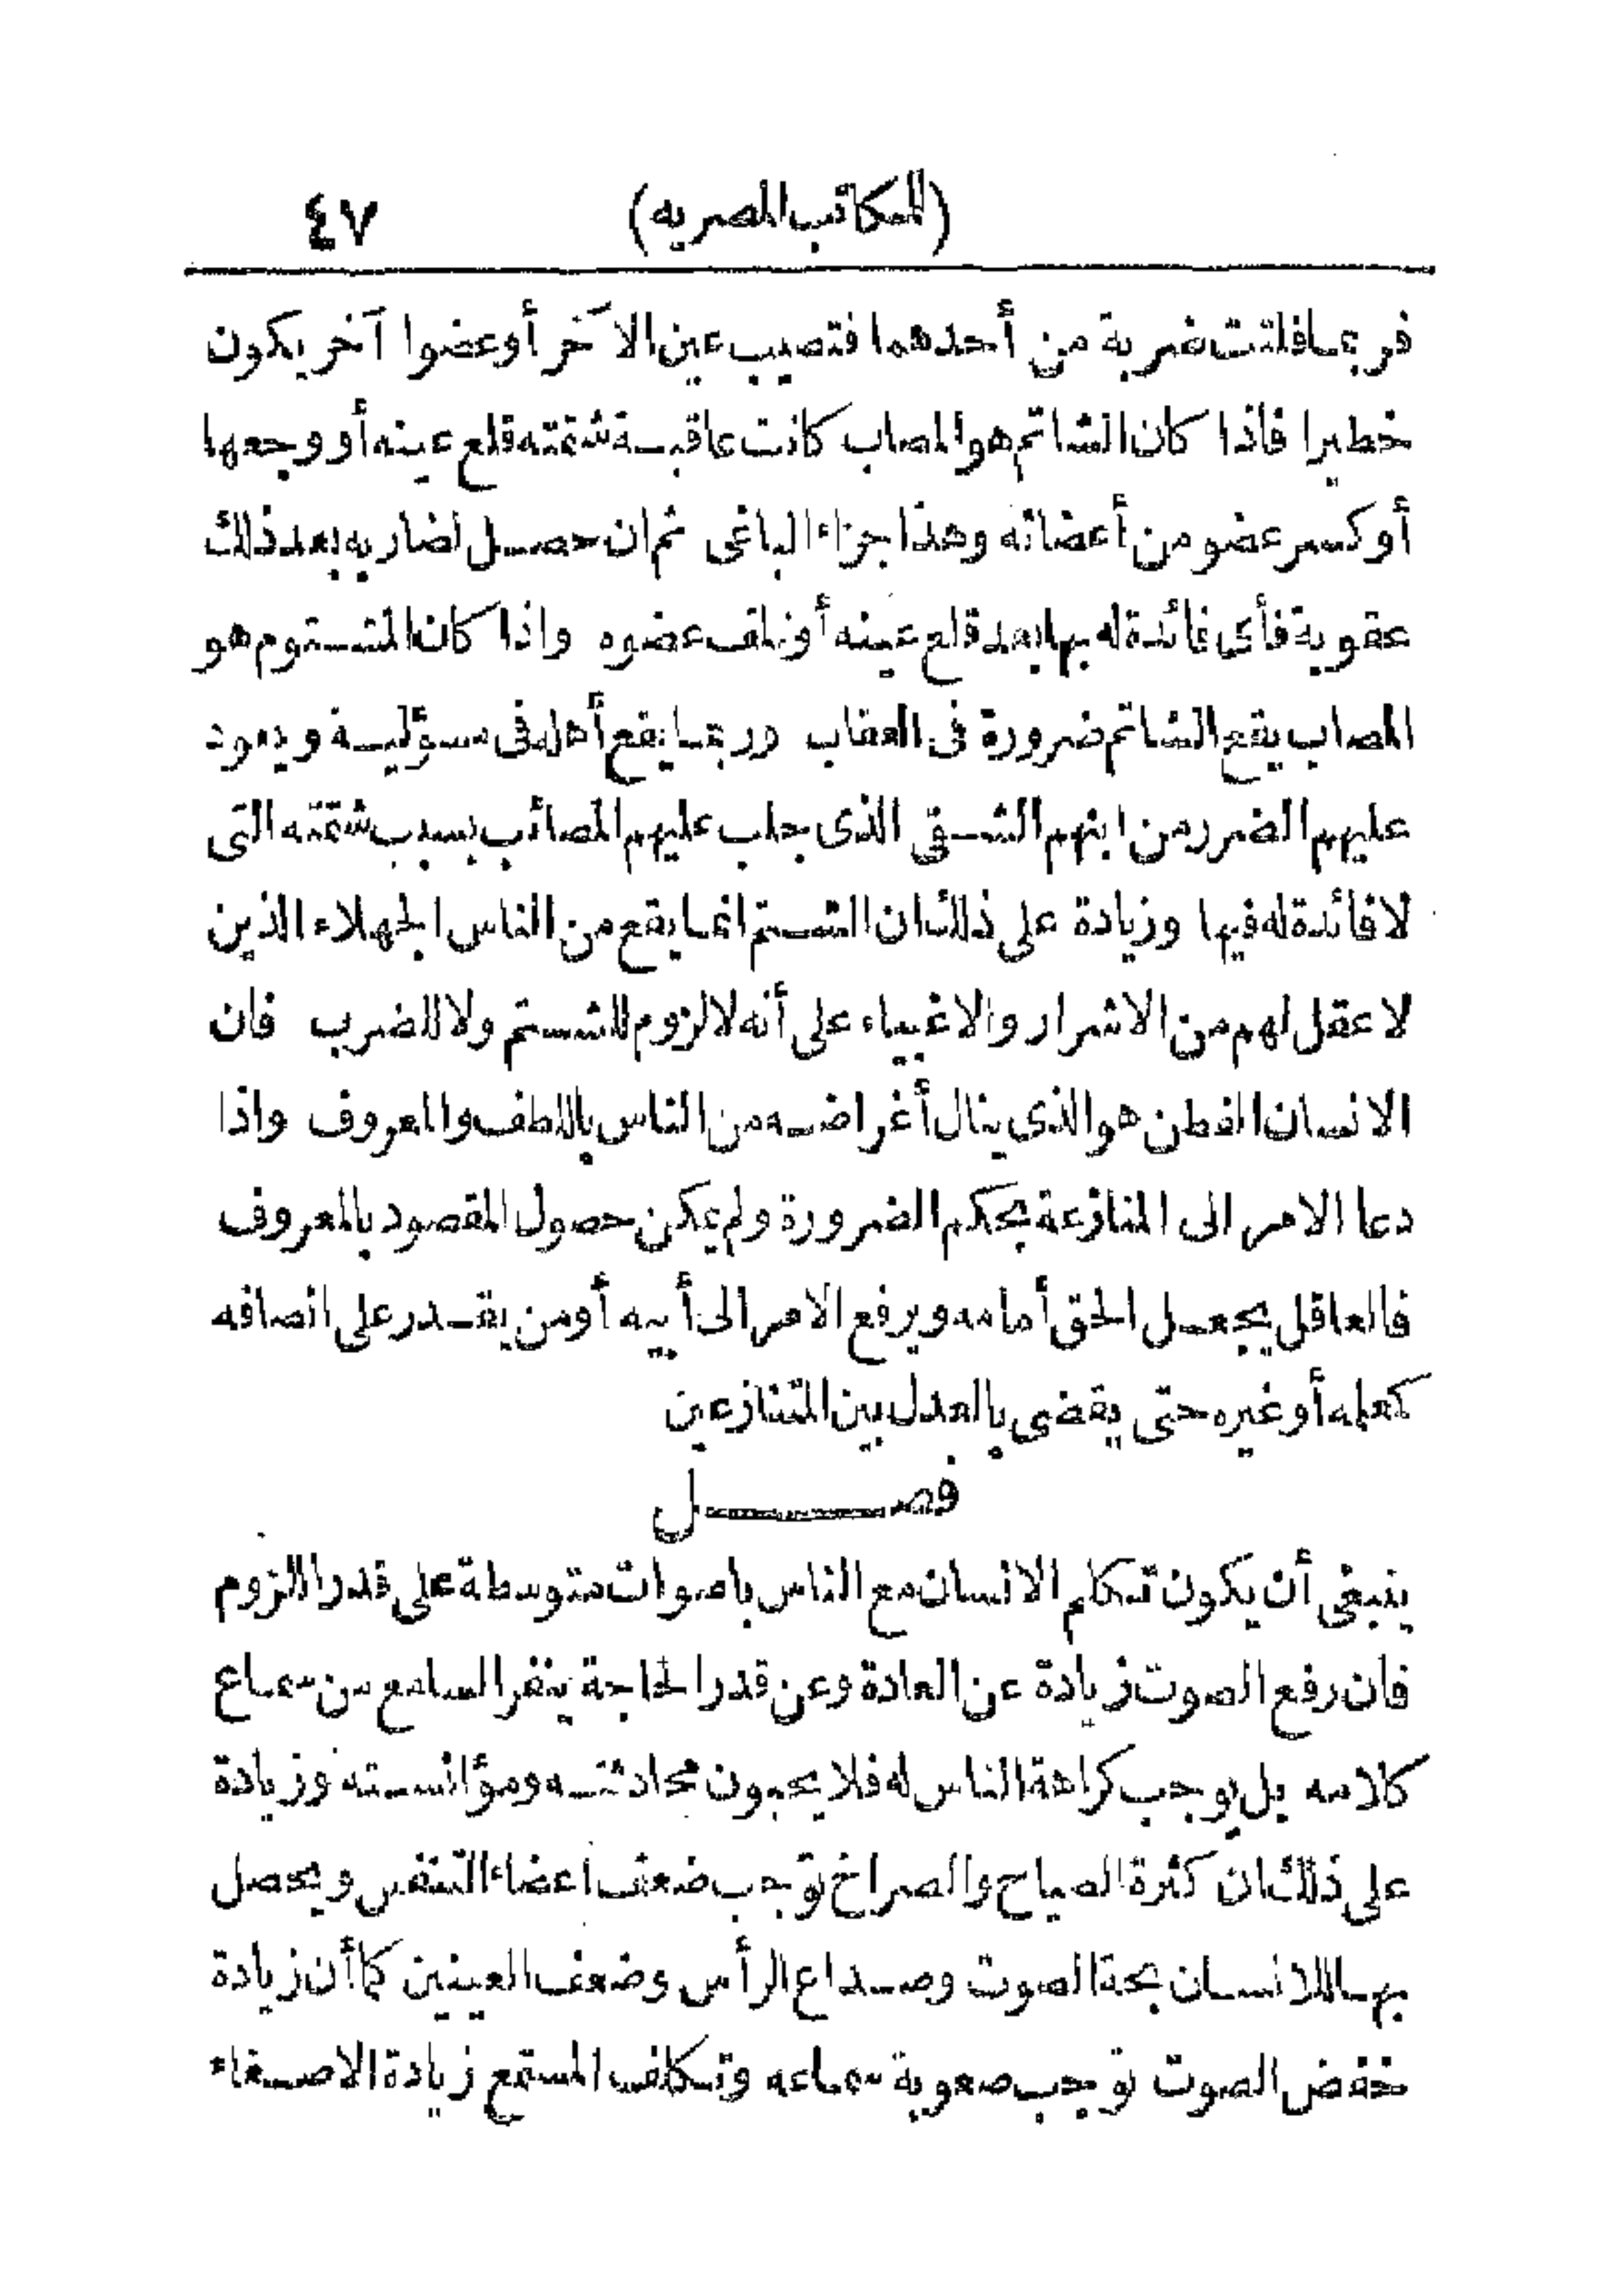 (للمكاتب المصريه) ٤٧
فربما فلتت ضربة من أحدهما فتصيب عين الآخر أو عضوا آخر يكون
خطيرا فاذا كان الشاتم هو المصاب كانت عاقبة شتمته قلع عينه أو وجعها
أو كسر عضو من أعضائه وهذا جزاء الباغى ثم ان حصل لضاربه بعد ذلك
عقوبة فأى فائدة له بها بعد قلع عينه أو تلف عضوه واذا كان المشتوم هو
المصاب يقع الشاتم ضرورة فى العقاب وربما يقع أهله فى مسؤلية ويعود
عليهم الضرر من ابنهم الشقى الذى جلب عليهم المصائب بسبب شتمته التى
لا فائدة له فيها وزيادة على ذلك ان الشتم انما يقع من الناس الجهلاء الذين
لا عقل لهم من الاشرار والاغبياء على أنه لا لزوم للشتم ولا للضرب فان
الانسان الفطن هو الذى ينال أغراضه من الناس باللطف والمعروف واذا
دعا الامر الى المنازعة بحكم الضرورة ولم يمكن حصول المقصود بالمعروف
فالعاقل يجعل الحق أمامه ويرفع الامر الى أبيه أو من يقدر على انصافه
كمعلمه أو غيره حتى يقضى بالعدل بين المتنازعين
فصل
ينبغى أن يكون تكلم الانسان مع الناس باصوات متوسطة على قدر اللزوم
فان رفع الصوت زيادة عن العادة وعن قدر الحاجة ينفر السامع من سماع
كلامه بل يوجب كراهة الناس له فلا يحبون محادثته ومؤانسته وزيادة
على ذلك ان كثرة الصياح والصراخ توجب ضعف اعضاء التنفس ويحصل
بها للانسان بحة الصوت وصداع الرأس وضعف العينين كما أن زيادة
خفض الصوت توجب صعوبة سماعه وتكلف المستمع زيادة الاصغاء